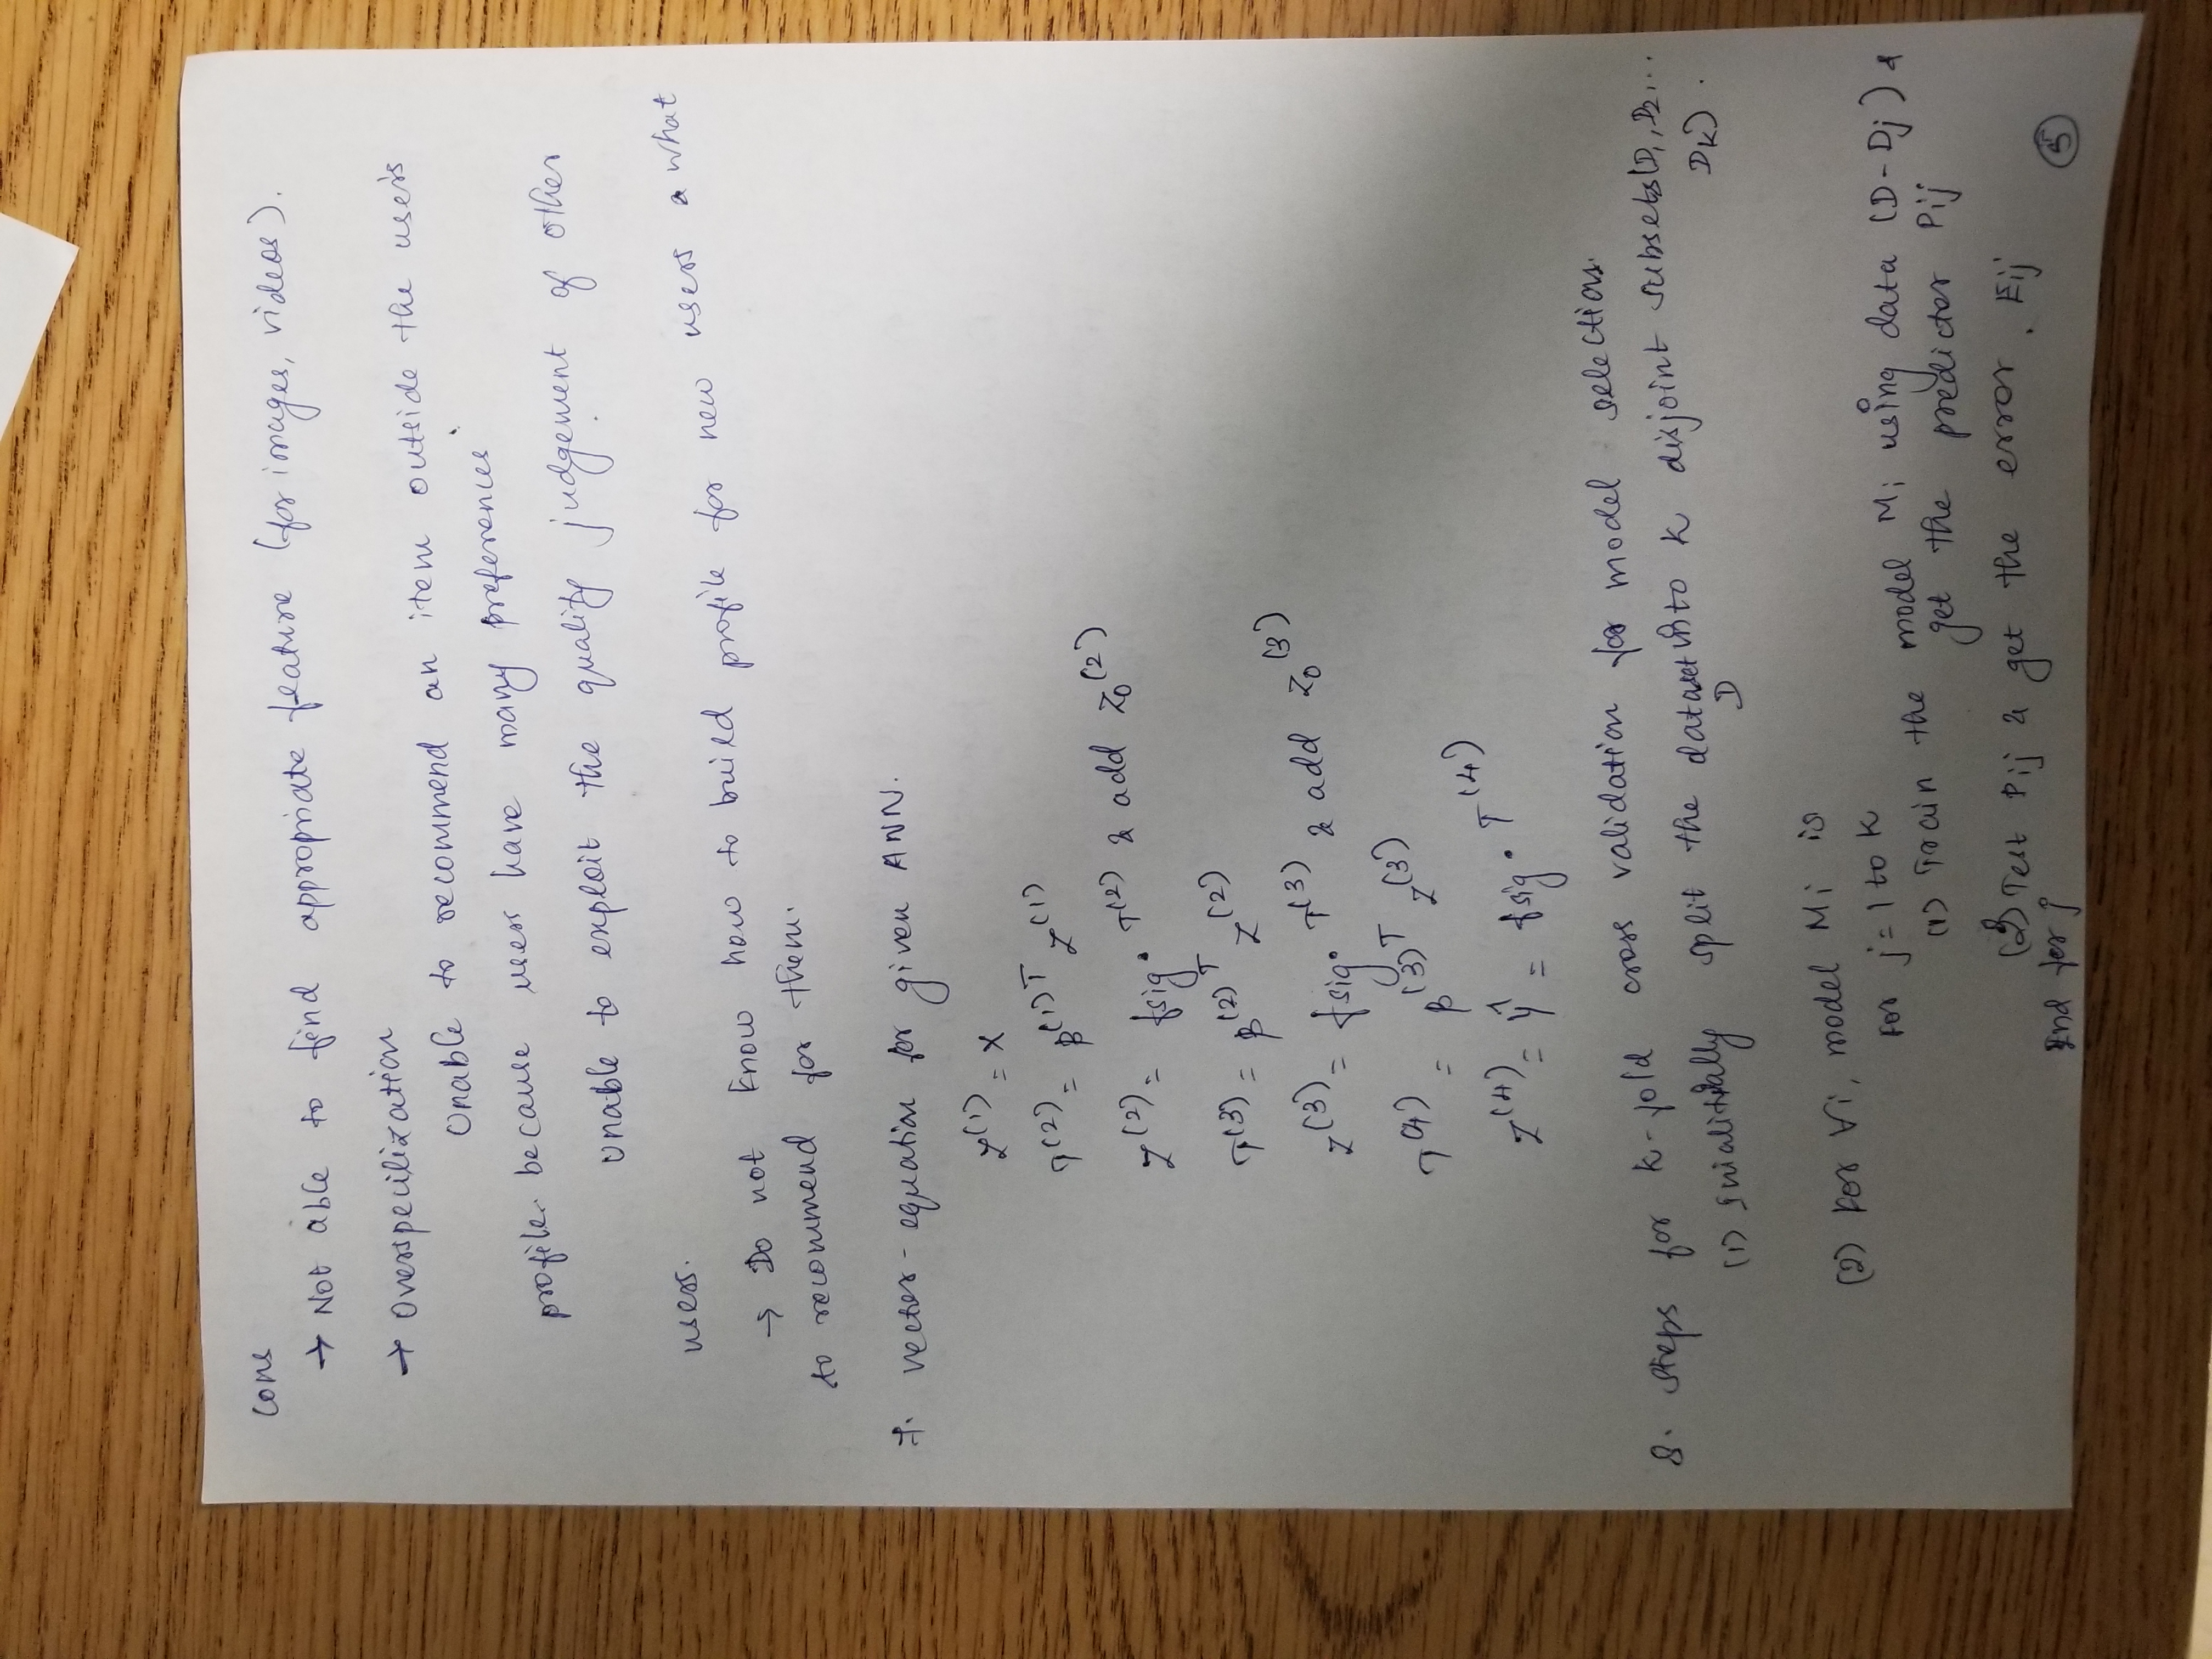 Cons
→ Not able to find appropriate feature (for images, videos).
→ Overspecilization
Unable to recommend an item outside the user's
profile. because users have many preferences
Unable to exploit the quality judgement of other
users.
→ Do not know how to build profile for new users & what
to recommend for them.
7. vector-equation for given ANN.
Z⁽¹⁾ = X
T⁽²⁾ = β⁽¹⁾ᵀ Z⁽¹⁾
Z⁽²⁾ = fsig · T⁽²⁾ & add Z₀⁽²⁾
T⁽³⁾ = β⁽²⁾ᵀ Z⁽²⁾
Z⁽³⁾ = fsig · T⁽³⁾ & add Z₀⁽³⁾
T⁽⁴⁾ = β⁽³⁾ᵀ Z⁽³⁾
Z⁽⁴⁾ = ŷ = fsig · T⁽⁴⁾
8. Steps for k-fold cross validation for model selection.
(1) split the dataset into k disjoint subsets (D₁, D₂, ...
D
Dk).
(2) For ∀i, model Mi is
For j = 1 to k
(1) Train the model Mi using data (D - Dj) &
get the predictor Pij
(2) Test Pij & get the error. Eij
End for j
5